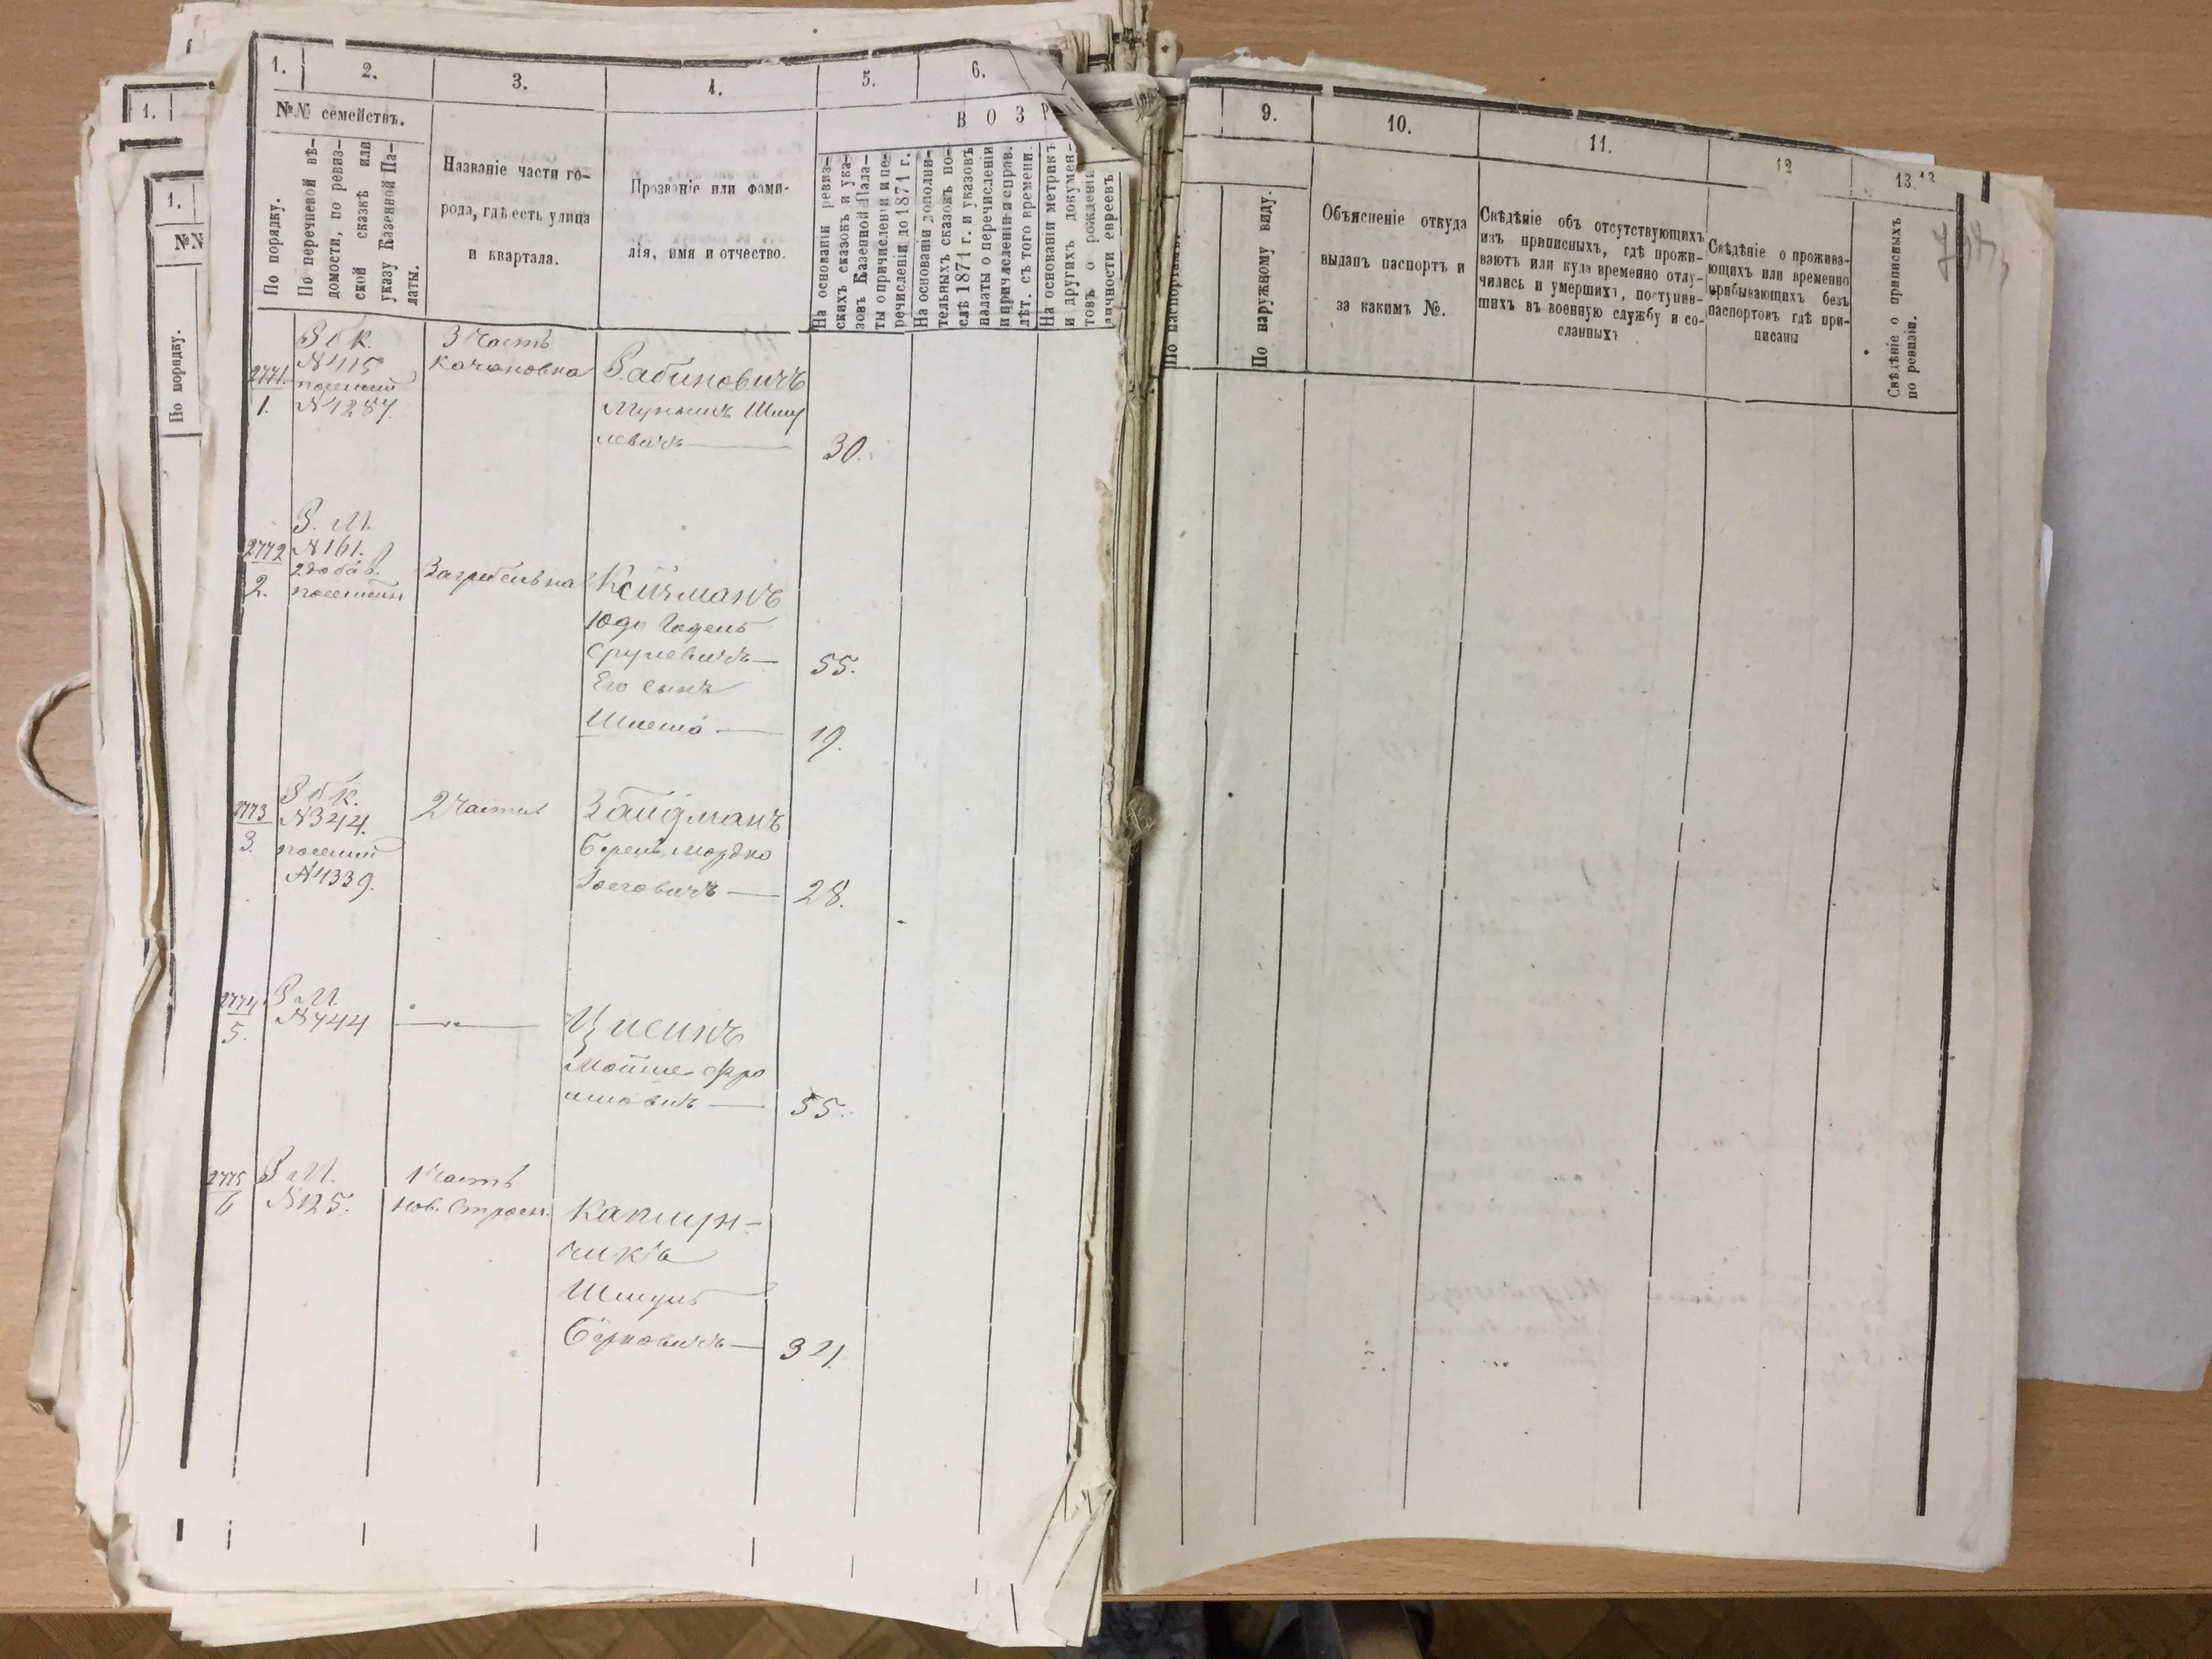 1.
2.
3.
4.
5.
6.
№№ семействъ.
В О З Р
По порядку.
По перечневой вѣ-
домости, по ревиз-
ской сказкѣ или
указу Казенной Па-
латы.
Названіе части го-
рода, гдѣ есть улица
и квартала.
Прозваніе или фами-
лія, имя и отчество.
На основаніи ревиз-
скихъ сказокъ и ука-
зовъ Казенной Пала-
ты о причисленіи и пе-
речисленіи до 1871 г.
На основаніи дополни-
тельныхъ сказокъ по-
слѣ 1871 г. и указовъ
палаты о перечисленіи
и причисленіи и справ.
лѣт. съ того времени.
На основаніи метрикъ
и другихъ докумен-
товъ о рожденіи
личности евреевъ
2771.
1.
N 415
N 1287.
3 Часть
Качановка
Рабиновичъ
Шму
левичъ
30.
2772
2.
N 161.
Кейзманъ
Сруlевичъ
Его сынъ
55.
19.
2773
3.
N 344.
N 1339.
2 Часть
Зайдманъ
Мордко
28.
2774
5.
N 744
Мойше Фро
имовичъ
55.
2775
6
N 125.
1 Часть
Нов. Строен.
Каплун-
чикъ
Шмуль
Берковичъ
1.
№№
По порядку.
1.
9.
10.
11.
12
13.
По паспортамъ.
По наружному виду.
Объясненіе откуда
выданъ паспортъ и
за какимъ №.
Свѣдѣніе объ отсутствующихъ
изъ приписныхъ, гдѣ прожи-
ваютъ или куда временно отлу-
чились и умершихъ, поступив-
шихъ въ военную службу и со-
сланныхъ
Свѣдѣніе о прожива-
ющихъ или временно
прибывающихъ безъ
паспортовъ гдѣ при-
писаны
Свѣдѣніе о приписныхъ
по ревизіи.